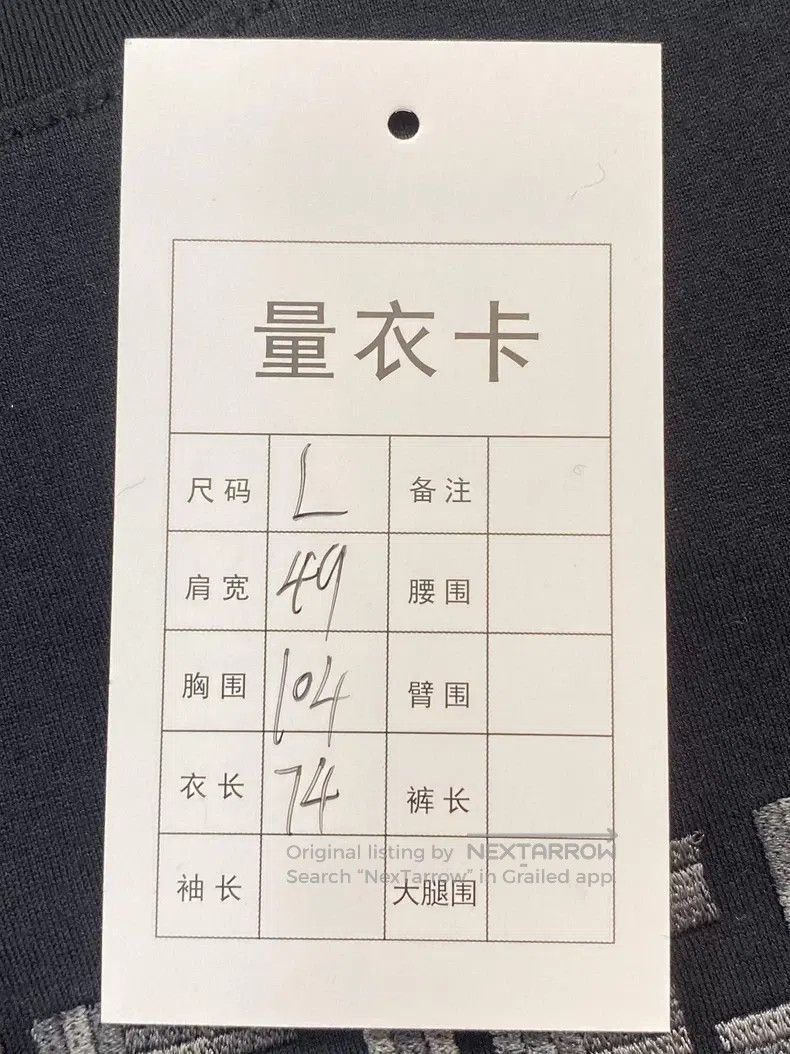 量衣卡
尺码 L 备注
肩宽 49 腰围
胸围 104 臂围
衣长 74 裤长
Original listing by NEXTARROW
Search “NexTarrow” in Grailed app
袖长 大腿围